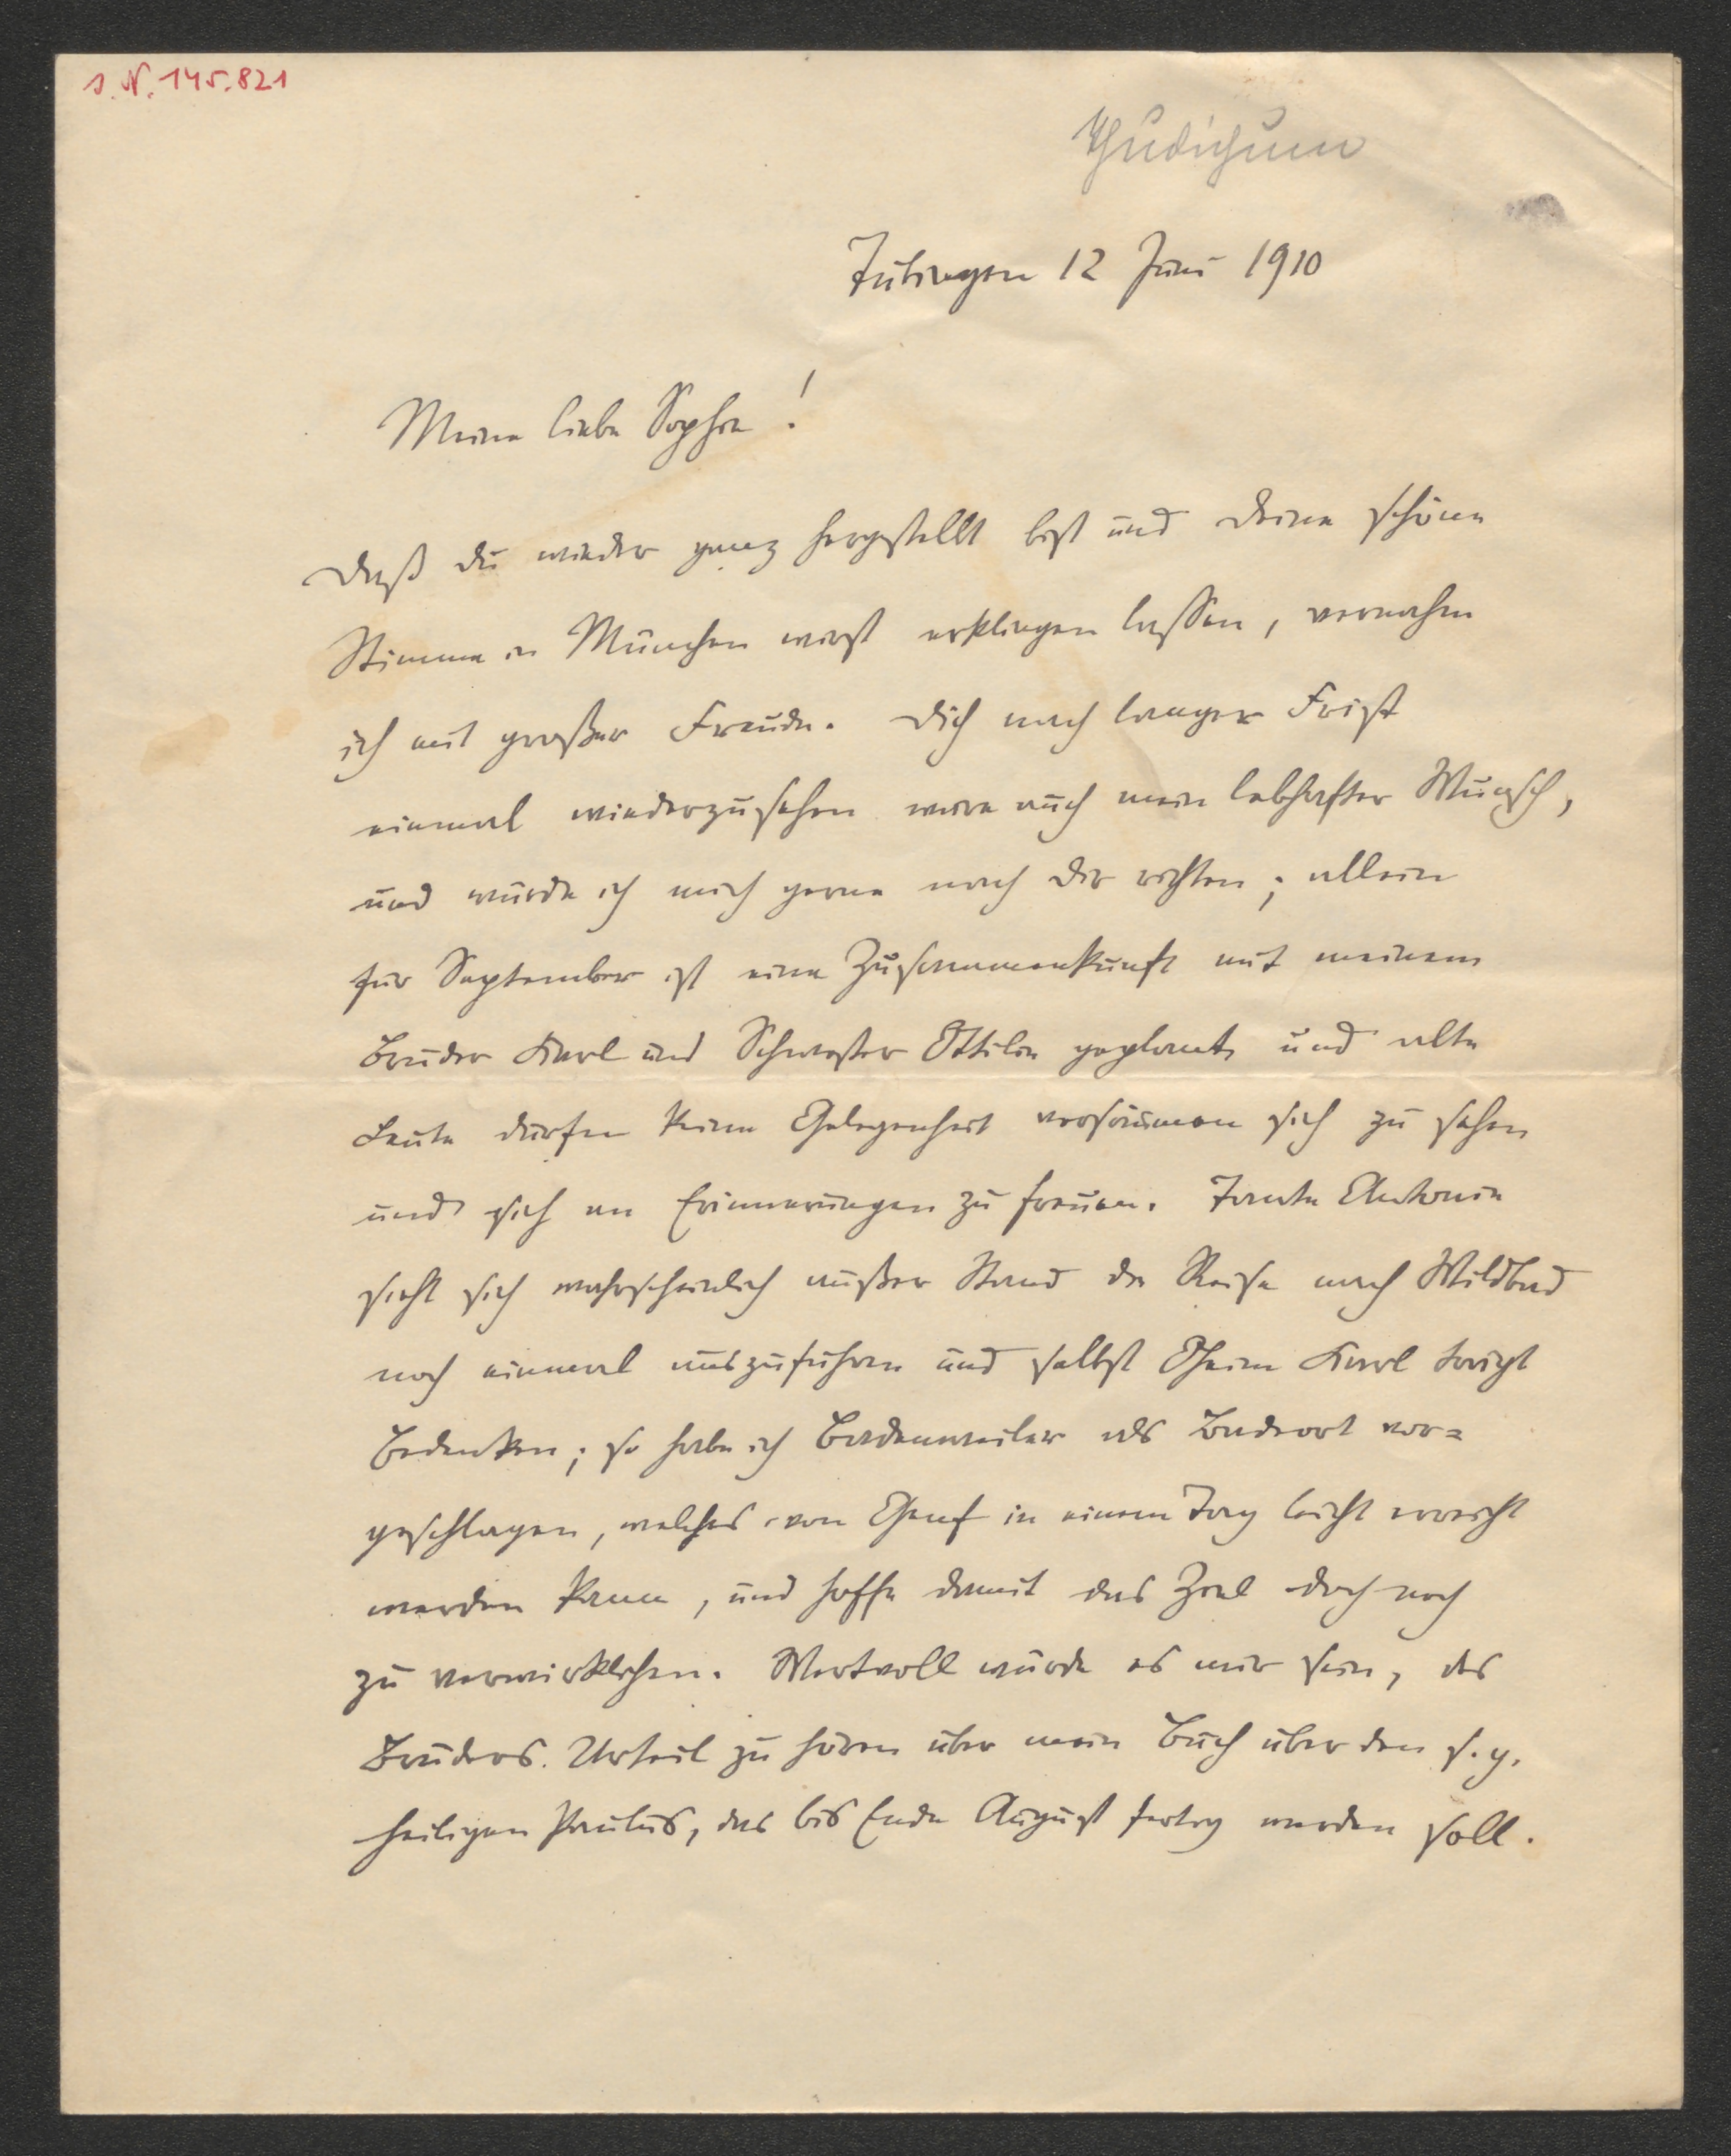 I. N. 145.821
Thudichum
Tübingen 12 Juni 1910
Meine liebe Sophie!
Daß du wieder ganz hergestellt bist und deine schöne
Stimme in München wirst erklingen lassen, vernahm
ich mit großer Freude. Dich nach langer Frist
einmal wiederzusehen wäre auch mein lebhafter Wunsch,
und würde ich mich gerne nach dir richten; allein
für September ist eine Zusammenkunft mit meinem
Bruder Karl und Schwester Ottilie geplant, und alte
Leute dürfen keine Gelegenheit versäumen sich zu sehen
und sich an Erinnerungen zu freuen. Tante Antonie
sieht sich wahrscheinlich außer Stand die Reise nach Wildbad
noch einmal auszuführen und selbst Oheim Karl trägt
Bedenken; so habe ich Badenweiler als Badeort vor=
geschlagen, welches von Genf in einem Tag leicht erreicht
werden kann, und hoffe damit das Ziel doch noch
zu verwirklichen. Wertvoll würde es mir sein, des
Bruders Urteil zu hören über mein Buch über den s. g.
heiligen Paulus, das bis Ende August fertig werden soll.